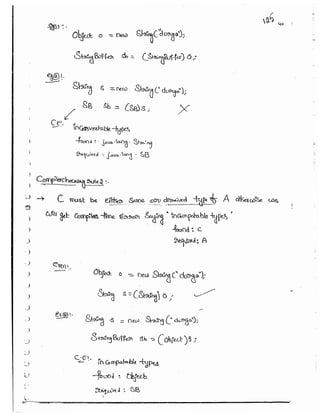 Ex①:-
Object o = new String("durga");
StringBuffer sb = (StringBuffer) o;
Ex②:-
String s = new String("durga");
SB sb = (SB) s; X
C.E:- inconvertable-types
found : java.lang.String
required : java.lang.SB
Compilerchecking rule 2 :-
→ C must be either same or derived type of A otherwise we
will get Compile-time Error Saying 'Incompatable types'
found : C
required : A
Ex①:-
Object o = new String("durga");
String s = (String) o ; ✓
Ex②:-
String s = new String("durga");
StringBuffer sb = (object) s ;
C.E:- incompatable-types
found : Object
required : SB